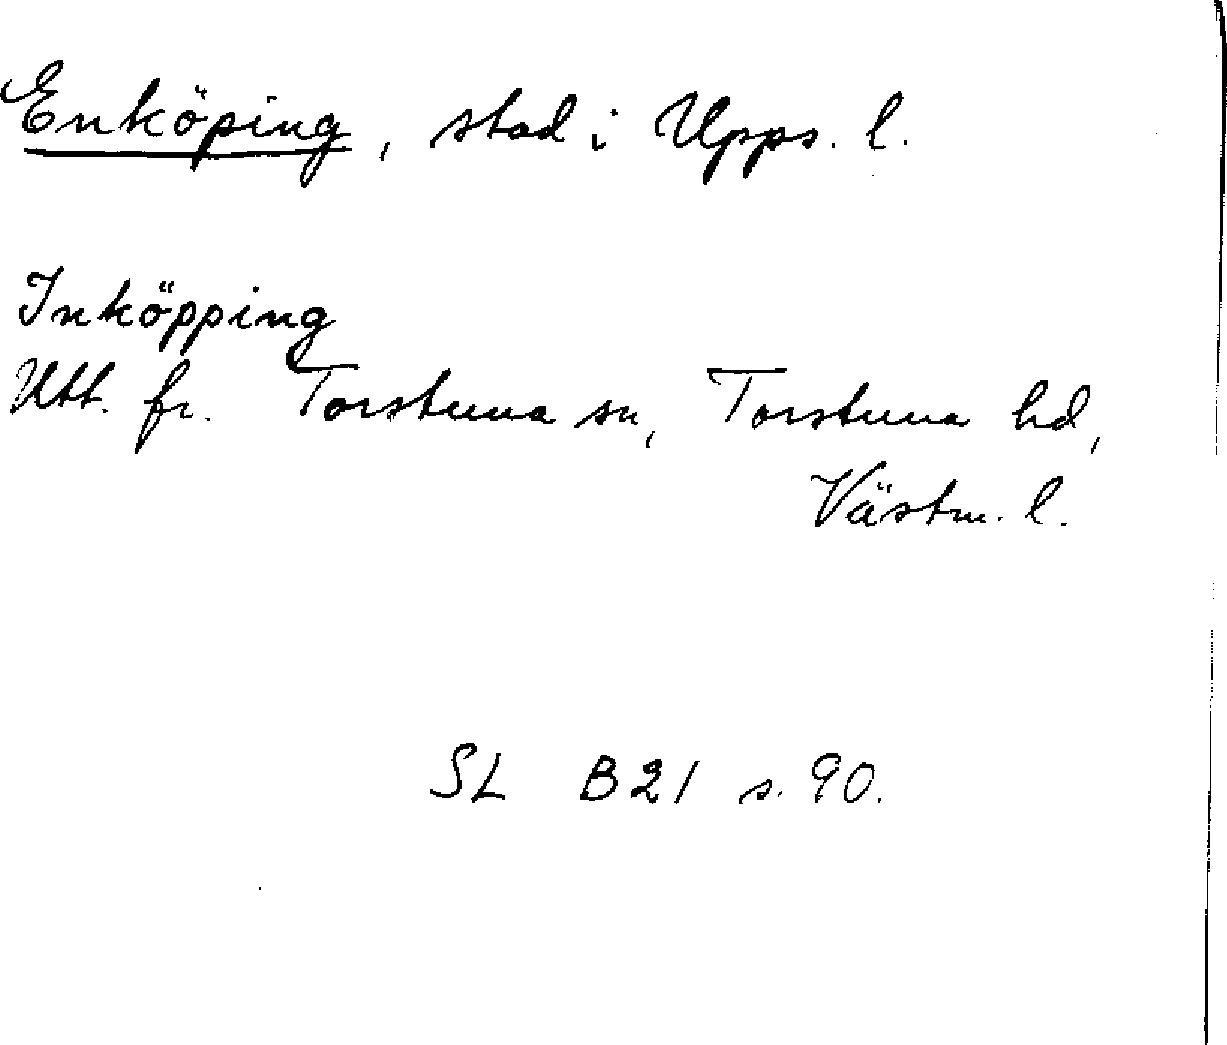 Enköping, stad i Upps. l.
Inköpping
Utt. fr. Torstuna sn, Torstuna hd,
Västm. l.
SL B21 s. 90.